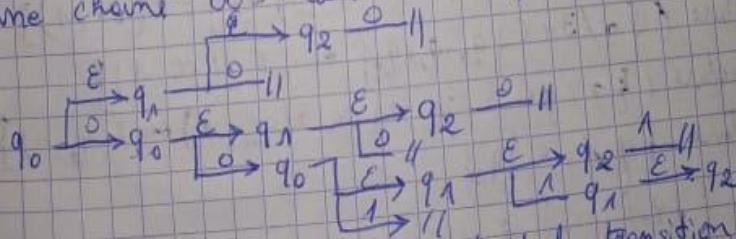 une chaine
ε q2 0 //
ε q1 0 //
q0 0 q0 ε q1 ε q2 0 //
0 q0 0 //
ε q1 ε q2 1 //
1 // 1 q1 ε q2
transition